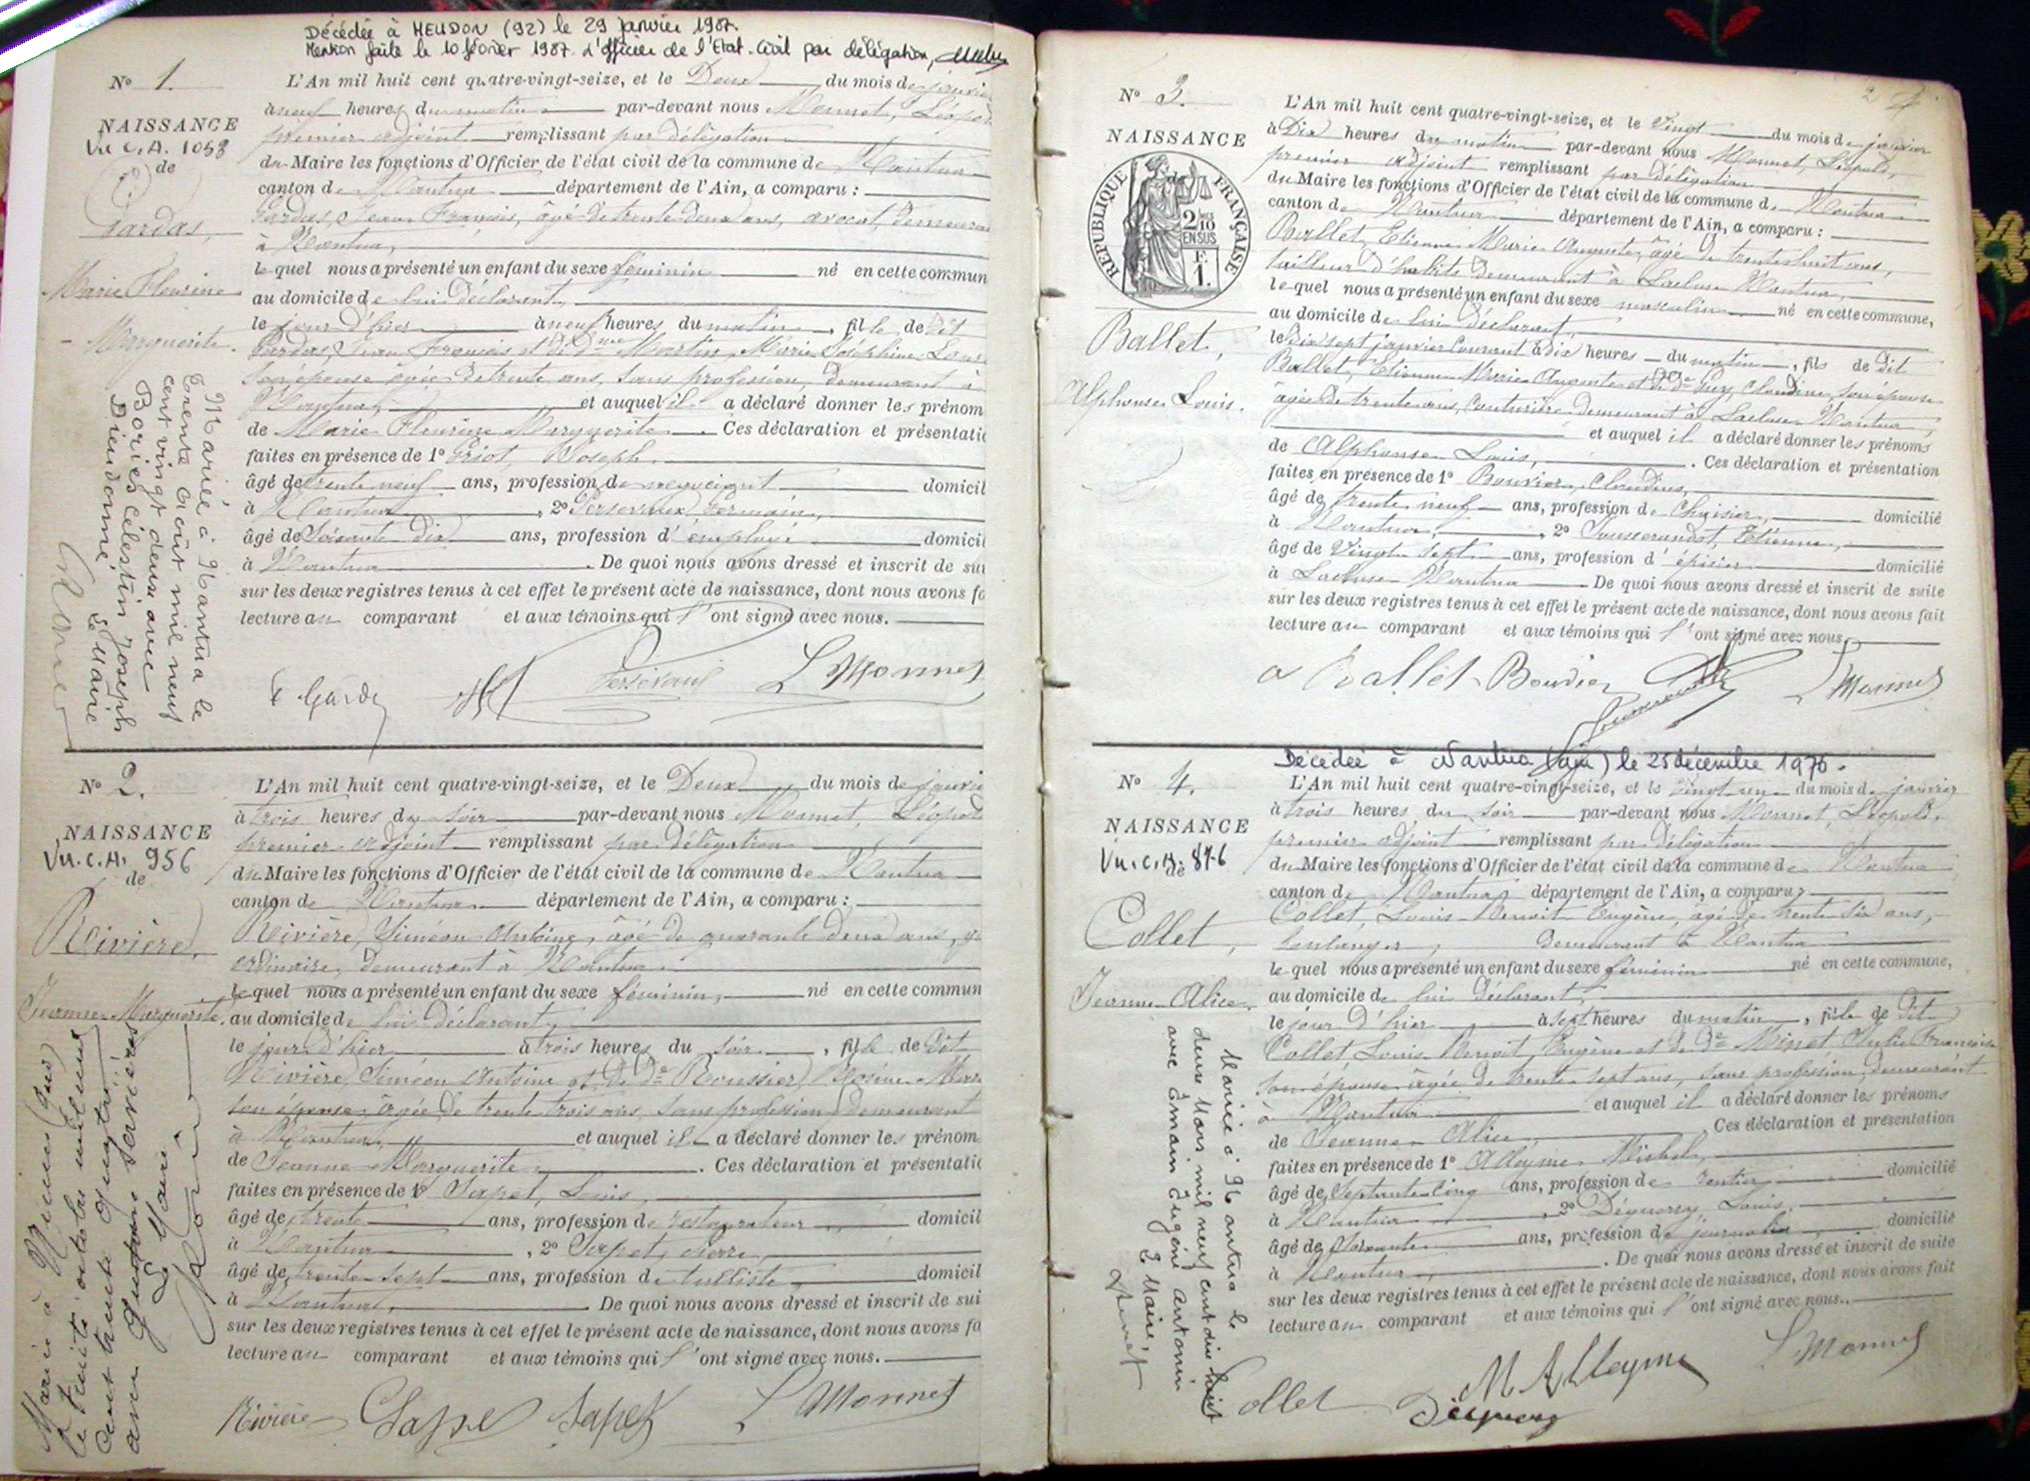 Décédée à MEUDON (92) le 29 janvier 1987.
Mention faite le 10 février 1987. L'officier de l'Etat-Civil par délégation,
N° 1.
NAISSANCE
Vu C.A. 1058
de
Gardas,
Marie Fleurine
Marguerite.
Mariée à Nantua le
trente Août mil neuf
cent vingt deux avec
Bories Célestin Joseph
Dieudonné
Le Maire
L'An mil huit cent quatre-vingt-seize, et le Deux du mois de janvier
à neuf heures du matin par-devant nous Monnet, Léopold
premier adjoint remplissant par délégation
du Maire les fonctions d'Officier de l'état civil de la commune de Nantua
canton de Nantua département de l'Ain, a comparu :
Gardas, Jean François, âgé de trente deux ans, avocat, demeurant
à Nantua,
lequel nous a présenté un enfant du sexe féminin né en cette commun
au domicile de lui déclarant,
le jour d'hier à neuf heures du matin, fille de dit
Gardas, Jean François et de Martin, Marie Joséphine
son épouse âgée de trente ans, sans profession, demeurant à
Nantua, et auquel il a déclaré donner les prénom
de Marie Fleurine Marguerite. Ces déclaration et présentatio
faites en présence de 1° Griot, Joseph,
âgé de trente neuf ans, profession de négociant domicil
à Nantua, 2° Germain,
âgé de Soixante Dix ans, profession d'employé domicil
à Nantua. De quoi nous avons dressé et inscrit de sui
sur les deux registres tenus à cet effet le présent acte de naissance, dont nous avons fa
lecture au comparant et aux témoins qui l'ont signé avec nous.
L Monnet
N° 2.
NAISSANCE
Vu. C.A. 956
de
Rivière,
Jeanne Marguerite.
le trente octobre mil neuf
cent trente quatre
avec
Le Maire
L'An mil huit cent quatre-vingt-seize, et le Deux du mois de janvie
à trois heures du soir par-devant nous Monnet, Léopold
premier adjoint remplissant par délégation
du Maire les fonctions d'Officier de l'état civil de la commune de Nantua
canton de Nantua département de l'Ain, a comparu :
Rivière, Siméon Antoine, âgé de quarante deux ans,
ordinaire, demeurant à Nantua.
lequel nous a présenté un enfant du sexe féminin, né en cette commun
au domicile de lui déclarant,
le jour d'hier à trois heures du soir, fille de dit
Rivière, Siméon Antoine et de de Roussier,
son épouse âgée de trente trois ans, sans profession demeurant
à Nantua, et auquel il a déclaré donner les prénom
de Jeanne Marguerite. Ces déclaration et présentatio
faites en présence de 1° Sapet, Louis,
âgé de trente ans, profession de restaurateur domicil
à Nantua, 2° Sapet, Pierre,
âgé de trente-sept ans, profession de tulliste domicil
à Nantua, De quoi nous avons dressé et inscrit de sui
sur les deux registres tenus à cet effet le présent acte de naissance, dont nous avons fa
lecture au comparant et aux témoins qui l'ont signé avec nous.
Rivière Sapet L Monnet
2
N° 3.
NAISSANCE
de
RÉPUBLIQUE FRANÇAISE
2/10 EN SUS
F. 1.
Ballet,
Alphonse Louis.
L'An mil huit cent quatre-vingt-seize, et le vingt du mois de janvier
à Dix heures du matin par-devant nous Monnet, Léopold,
premier adjoint remplissant par délégation
du Maire les fonctions d'Officier de l'état civil de la commune de Nantua
canton de Nantua département de l'Ain, a comparu :
Ballet, Etienne Marie Auguste, âgé de trente huit ans,
tailleur d'habits demeurant à Lacluse Nantua,
lequel nous a présenté un enfant du sexe masculin né en cette commune,
au domicile de lui déclarant,
le dix sept janvier courant à dix heures du matin, fils de dit
Ballet, Etienne Marie Auguste et de de Claudine, son épouse
âgée de trente ans, couturière demeurant à Lacluse Nantua,
et auquel il a déclaré donner les prénoms
de Alphonse Louis, . Ces déclaration et présentation
faites en présence de 1° Bouvier, Claudius,
âgé de trente neuf ans, profession de domicilié
à Nantua, 2° Jousserandot, Etienne,
âgé de vingt sept ans, profession d'épicier domicilié
à Lacluse Nantua De quoi nous avons dressé et inscrit de suite
sur les deux registres tenus à cet effet le présent acte de naissance, dont nous avons fait
lecture au comparant et aux témoins qui l'ont signé avec nous.
a Ballet Bouvier L Monnet
Décédée à Nantua (Ain) le 25 décembre 1976.
N° 4.
NAISSANCE
Vu. C.A. 876
de
Collet,
Jeanne Alice.
Mariée à Nantua le
deux Mars mil neuf cent dix huit
avec Eugène Antonin
Le Maire,
L'An mil huit cent quatre-vingt-seize, et le vingt un du mois de janvier
à trois heures du soir par-devant nous Monnet, Léopold,
premier adjoint remplissant par délégation
du Maire les fonctions d'Officier de l'état civil de la commune de Nantua
canton de Nantua département de l'Ain, a comparu :
Collet, Louis Benoit Eugène, âgé de trente six ans,
boulanger, demeurant à Nantua
lequel nous a présenté un enfant du sexe féminin né en cette commune,
au domicile de lui déclarant,
le jour d'hier à sept heures du matin, fille de dit
Collet Louis Benoit Eugène et de de Minet Julie Françoise
son épouse âgée de trente sept ans, sans profession, demeurant
à Nantua et auquel il a déclaré donner les prénoms
de Jeanne Alice, Ces déclaration et présentation
faites en présence de 1° Alleyme Michel,
âgé de Septante cinq ans, profession de rentier domicilié
à Nantua, 2° Déquerry Louis,
âgé de Soixante ans, profession de journalier, domicilié
à Nantua, . De quoi nous avons dressé et inscrit de suite
sur les deux registres tenus à cet effet le présent acte de naissance, dont nous avons fait
lecture au comparant et aux témoins qui l'ont signé avec nous.
Collet M Alleyme L Monnet